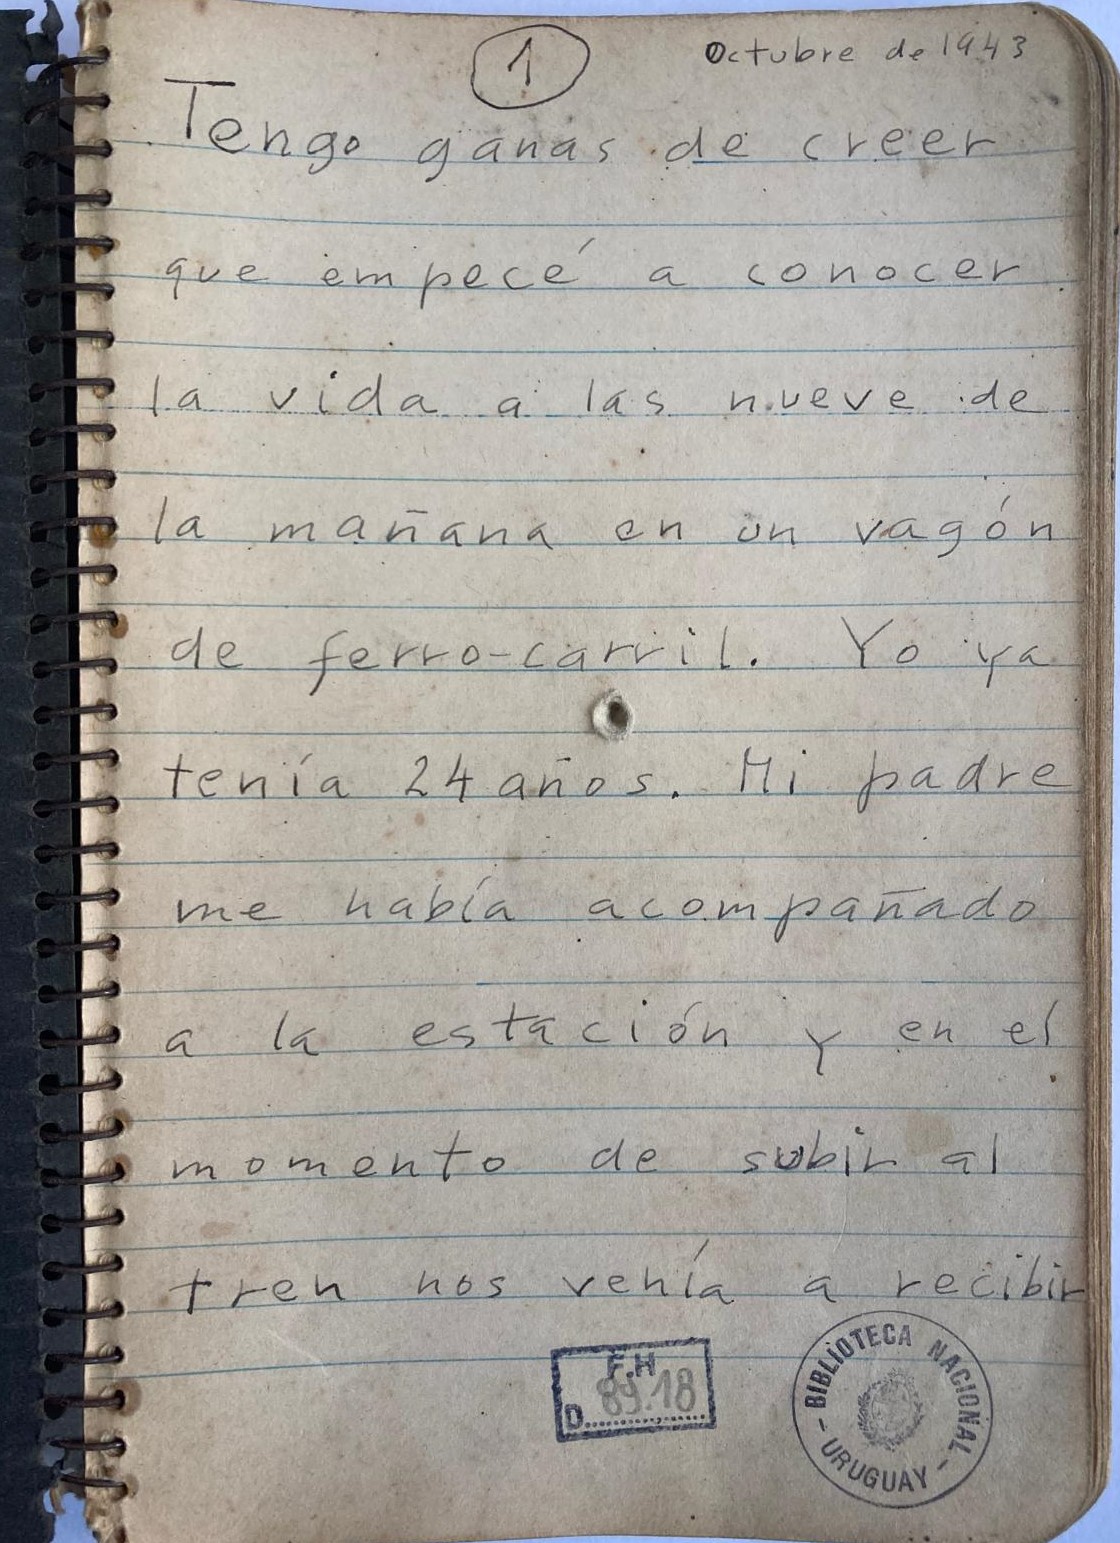 1
Octubre de 1943
Tengo ganas de creer
que empecé a conocer
la vida a las nueve de
la mañana en un vagón
de ferro-carril. Yo ya
tenía 24 años. Mi padre
me había acompañado
a la estación y en el
momento de subir al
tren nos venía a recibir
F.H
D 89.18
BIBLIOTECA NACIONAL
- URUGUAY -